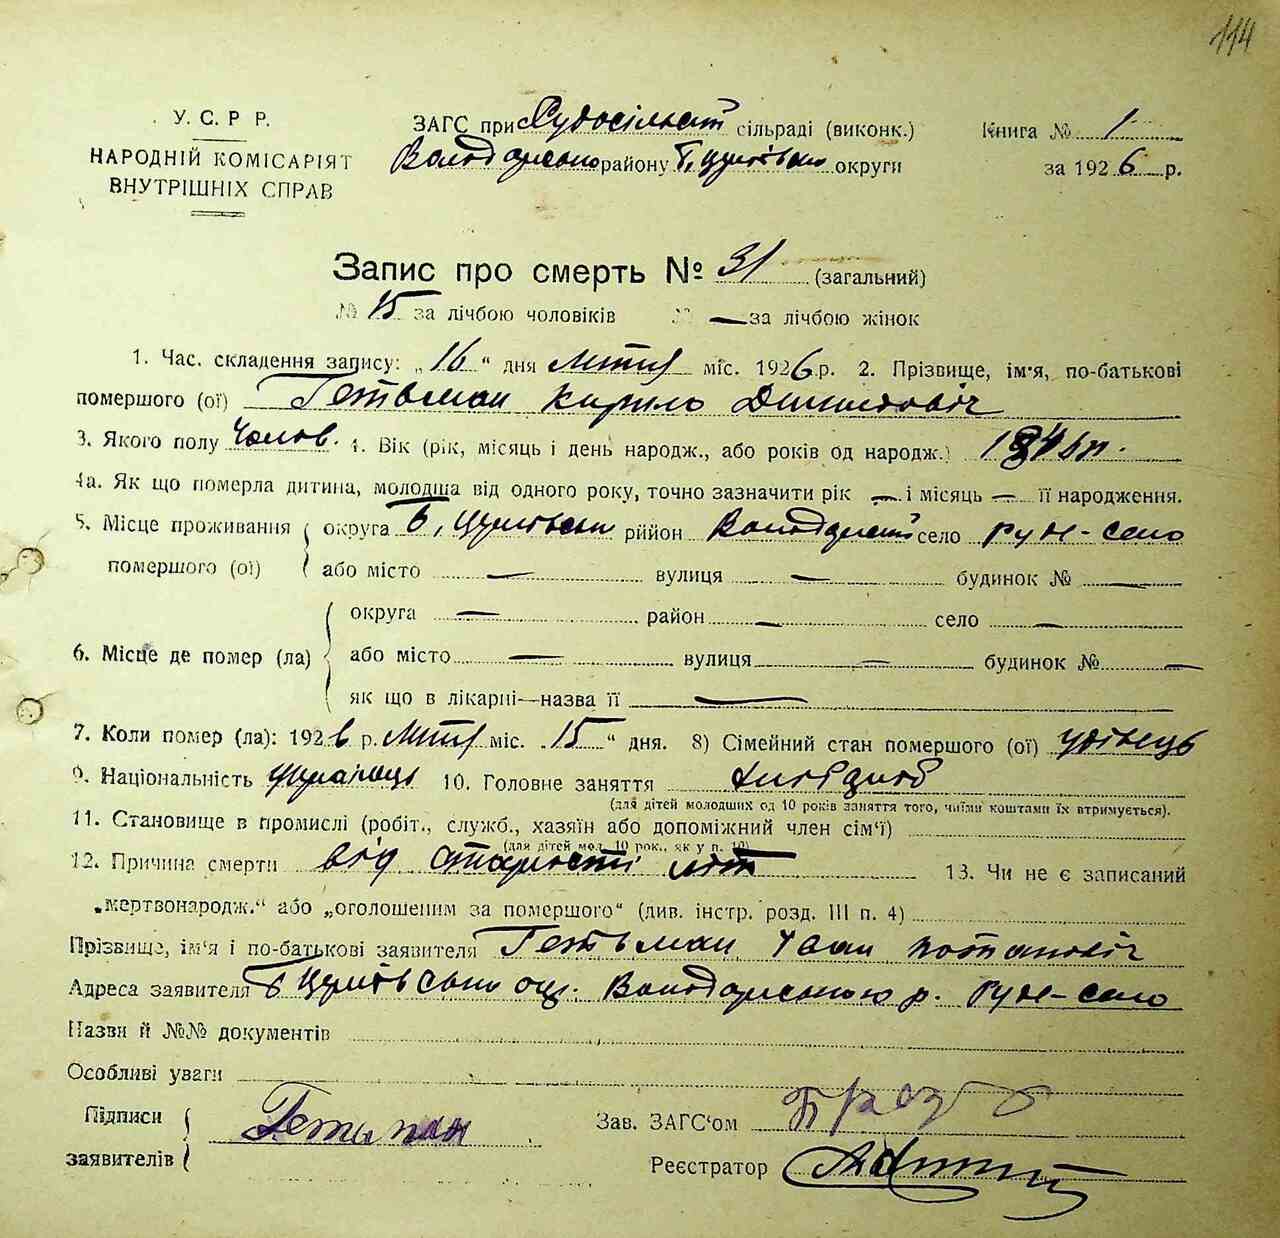 114
У. С. Р. Р.
НАРОДНІЙ КОМІСАРІЯТ
ВНУТРІШНІХ СПРАВ
ЗАГС при Рудосільськ сільраді (виконк.)
Володарсько району Б, Церківсько округи
Книга № 1
за 1926 р.
Запис про смерть № 31 (загальний)
№ 15 за лічбою чоловіків № — за лічбою жінок
1. Час. складення запису: „16“ дня Лютня міс. 1926 р. 2. Прізвище, ім'я, по-батькові
помершого (ої) Гетьман Кирило
3. Якого полу Чолов. 4. Вік (рік, місяць і день народж., або років од народж.)
4а. Як що померла дитина, молодша від одного року, точно зазначити рік — і місяць — її народження.
5. Місце проживання помершого (ої) округа Б, Церківськ рійон Володарськ село Руде-село
або місто — вулиця — будинок № —
6. Місце де помер (ла) округа — район — село —
або місто — вулиця — будинок № —
як що в лікарні—назва її —
7. Коли помер (ла): 1926 р. Лютня міс. „15“ дня. 8) Сімейний стан помершого (ої) удівець
9. Національність Українец 10. Головне заняття хлібороб
(для дітей молодших од 10 років заняття того, чиїми коштами їх втримується).
11. Становище в промислі (робіт., служб., хазяїн або допоміжний член сім'ї)
(для дітей мол. 10 рок., як у п. 10)
12. Причина смерти від старості літ 13. Чи не є записаний
„мертвонародж.“ або „оголошеним за помершого“ (див. інстр. розд. III п. 4)
Прізвище, ім'я і по-батькові заявителя Гетьман Іван Потапович
Адреса заявителя Б Церківсько окр. Володарського р. Руде-село
Назви й №№ документів
Особливі уваги
Підписи заявителів Гетьман
Зав. ЗАГС'ом
Реєстратор